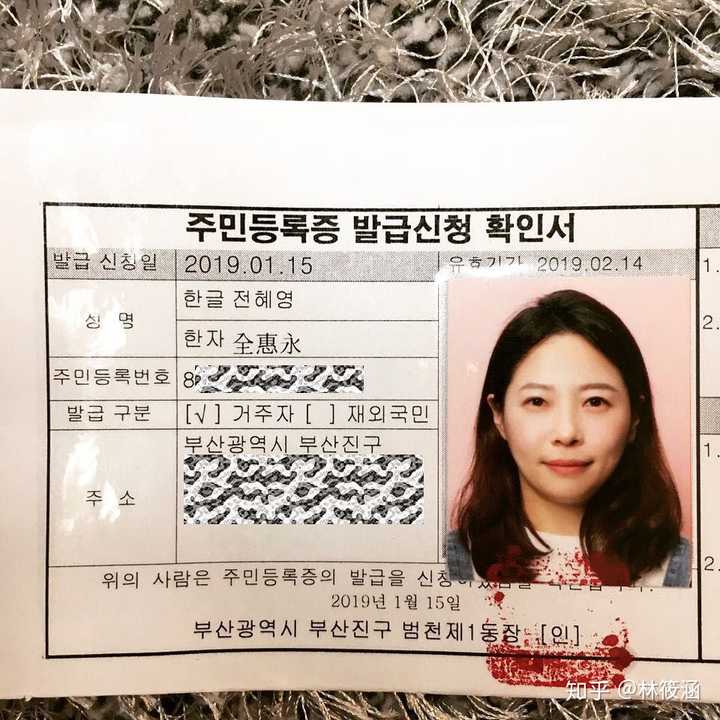 주민등록증 발급신청 확인서
발급 신청일 2019.01.15 유효기간 2019.02.14
성 명 한글 전혜영
한자 全惠永
주민등록번호 8
발급 구분 [√] 거주자 [ ] 재외국민
부산광역시 부산진구
주 소
위의 사람은 주민등록증의 발급을
2019년 1월 15일
부산광역시 부산진구 범천제1동장 [인]
1.
2.
1.
2.
知乎 @林筱涵